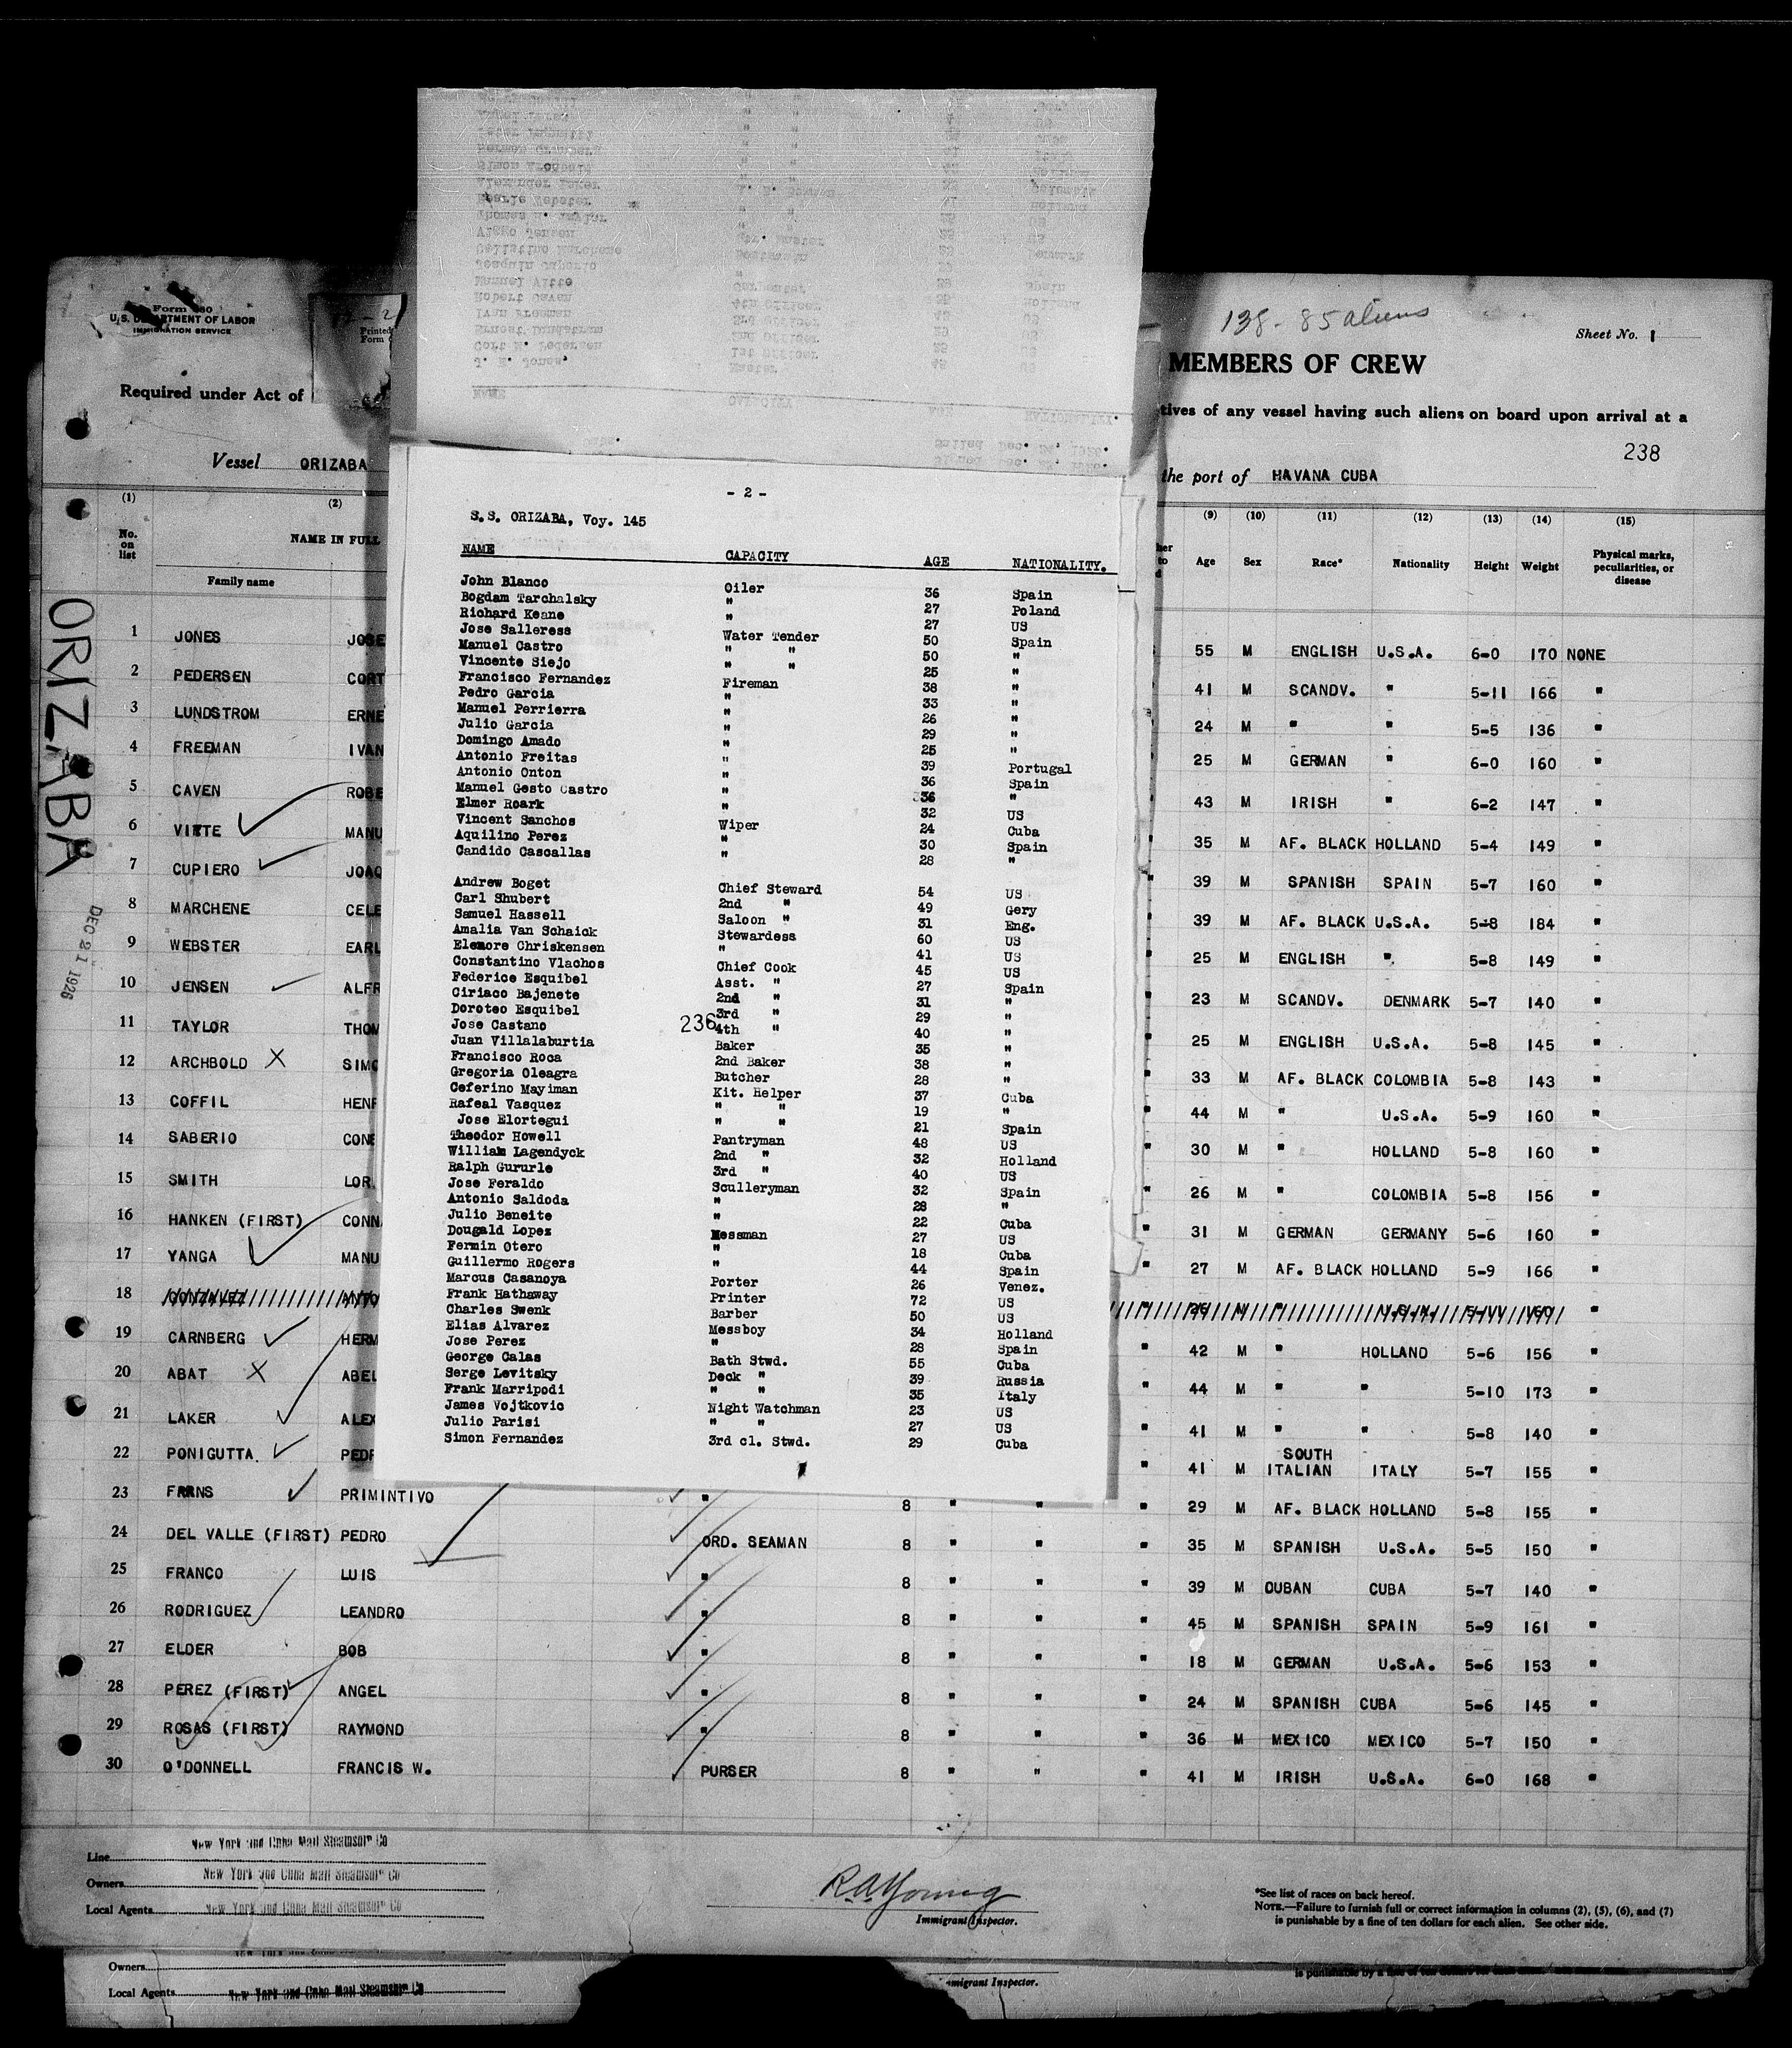 Form 680
U. S. DEPARTMENT OF LABOR
IMMIGRATION SERVICE
Printed
Form
138 - 85 aliens
Sheet No. 1
MEMBERS OF CREW
Required under Act of
tives of any vessel having such aliens on board upon arrival at a
238
Vessel ORIZABA
the port of HAVANA CUBA
ORIZABA
DEC 21 1926
- 2 -
S.S. ORIZABA, Voy. 145
NAME CAPACITY AGE NATIONALITY.
John Blanco Oiler 36 Spain
Bogdam Tarchalsky " 27 Poland
Richard Keane " 27 US
Jose Salleress Water Tender 50 Spain
Manuel Castro " " 50 "
Vincente Siejo " " 25 "
Francisco Fernandez Fireman 38 "
Pedro Garcia " 33 "
Manuel Perrierra " 26 "
Julio Garcia " 29 "
Domingo Amado " 25 "
Antonio Freitas " 39 Portugal
Antonio Onton " 36 Spain
Manuel Gesto Castro " 36 "
Elmer Roark " 32 US
Vincent Sanchos Wiper 24 Cuba
Aquilino Perez " 30 Spain
Candido Cascallas " 28 "
Andrew Boget Chief Steward 54 US
Carl Shubert 2nd " 49 Gery
Samuel Hassell Saloon " 31 Eng.
Amalia Van Schaick Stewardess 60 US
Elenore Chriskensen " 41 US
Constantino Vlachos Chief Cook 45 US
Federice Esquibel Asst. " 27 Spain
Ciriaco Bajenete 2nd " 31 "
Doroteo Esquibel 3rd " 29 "
Jose Castano 236 4th " 40 "
Juan Villalaburtia Baker 35 "
Francisco Roca 2nd Baker 38 "
Gregoria Oleagra Butcher 28 "
Ceferino Mayiman Kit. Helper 37 Cuba
Rafeal Vasquez " " 19 "
Jose Elortegui " " 21 Spain
Theodor Howell Pantryman 48 US
William Lagendyck 2nd " 32 Holland
Ralph Gururle 3rd " 40 US
Jose Feraldo Sculleryman 32 Spain
Antonio Saldoda " 28 "
Julio Beneite " 22 Cuba
Dougald Lopez Messman 27 US
Fermin Otero " 18 Cuba
Guillermo Rogers " 44 Spain
Marcus Casanoya Porter 26 Venez.
Frank Hathaway Printer 72 US
Charles Swenk Barber 50 US
Elias Alvarez Messboy 34 Holland
Jose Perez " 28 Spain
George Calas Bath Stwd. 55 Cuba
Serge Levitsky Deck " 39 Russia
Frank Marripodi " " 35 Italy
James Vojtkovic Night Watchman 23 US
Julio Parisi " " 27 US
Simon Fernandez 3rd cl. Stwd. 29 Cuba
(1) (2) (9) (10) (11) (12) (13) (14) (15)
No. on list NAME IN FULL Age Sex Race* Nationality Height Weight Physical marks, peculiarities, or disease
Family name
1 JONES JOSE 55 M ENGLISH U.S.A. 6-0 170 NONE
2 PEDERSEN CORT 41 M SCANDV. " 5-11 166 "
3 LUNDSTROM ERNE 24 M " " 5-5 136 "
4 FREEMAN IVAN 25 M GERMAN " 6-0 160 "
5 CAVEN ROBE 43 M IRISH " 6-2 147 "
6 VITTE MANU 35 M AF. BLACK HOLLAND 5-4 149 "
7 CUPIERO JOAQ 39 M SPANISH SPAIN 5-7 160 "
8 MARCHENE CELE 39 M AF. BLACK U.S.A. 5-8 184 "
9 WEBSTER EARL 25 M ENGLISH " 5-8 149 "
10 JENSEN ALFR 23 M SCANDV. DENMARK 5-7 140 "
11 TAYLOR THOM 25 M ENGLISH U.S.A. 5-8 145 "
12 ARCHBOLD X SIMO 33 M AF. BLACK COLOMBIA 5-8 143 "
13 COFFIL HENR 44 M " U.S.A. 5-9 160 "
14 SABERIO CONE 30 M " HOLLAND 5-8 160 "
15 SMITH LOR 26 M " COLOMBIA 5-8 156 "
16 HANKEN (FIRST) CONN 31 M GERMAN GERMANY 5-6 160 "
17 YANGA MANU 27 M AF. BLACK HOLLAND 5-9 166 "
18 GONZALEZ ANTO
19 CARNBERG HERM 42 M " HOLLAND 5-6 156 "
20 ABAT X ABEL 44 M " " 5-10 173 "
21 LAKER ALEX 41 M " " 5-8 140 "
22 PONIGUTTA PEDR 41 M SOUTH ITALIAN ITALY 5-7 155 "
23 FARNS PRIMINTIVO " 8 " " " 29 M AF. BLACK HOLLAND 5-8 155 "
24 DEL VALLE (FIRST) PEDRO ORD. SEAMAN 8 " " " 35 M SPANISH U.S.A. 5-5 150 "
25 FRANCO LUIS " 8 " " " 39 M CUBAN CUBA 5-7 140 "
26 RODRIGUEZ LEANDRO " 8 " " " 45 M SPANISH SPAIN 5-9 161 "
27 ELDER BOB " 8 " " " 18 M GERMAN U.S.A. 5-6 153 "
28 PEREZ (FIRST) ANGEL " 8 " " " 24 M SPANISH CUBA 5-6 145 "
29 ROSAS (FIRST) RAYMOND " 8 " " " 36 M MEXICO MEXICO 5-7 150 "
30 O'DONNELL FRANCIS W. PURSER 8 " " " 41 M IRISH U.S.A. 6-0 168 "
Line New York and Cuba Mail Steamship Co
Owners New York and Cuba Mail Steamship Co
Local Agents New York and Cuba Mail Steamship Co
R.A. Young
Immigrant Inspector.
*See list of races on back hereof.
NOTE.—Failure to furnish full or correct information in columns (2), (5), (6), and (7)
is punishable by a fine of ten dollars for each alien. See other side.
Owners
Local Agents New York and Cuba Mail Steamship Co
mmigrant Inspector.